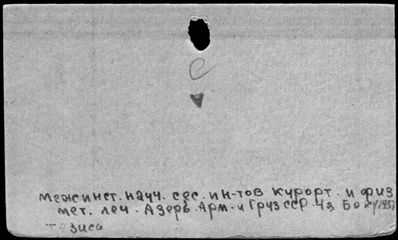 е
межинст. науч. сес. ин-тов курорт. и физ
мет. леч. Азерб. Арм. и Груз ССР. 4я Баку 1957
тезисы